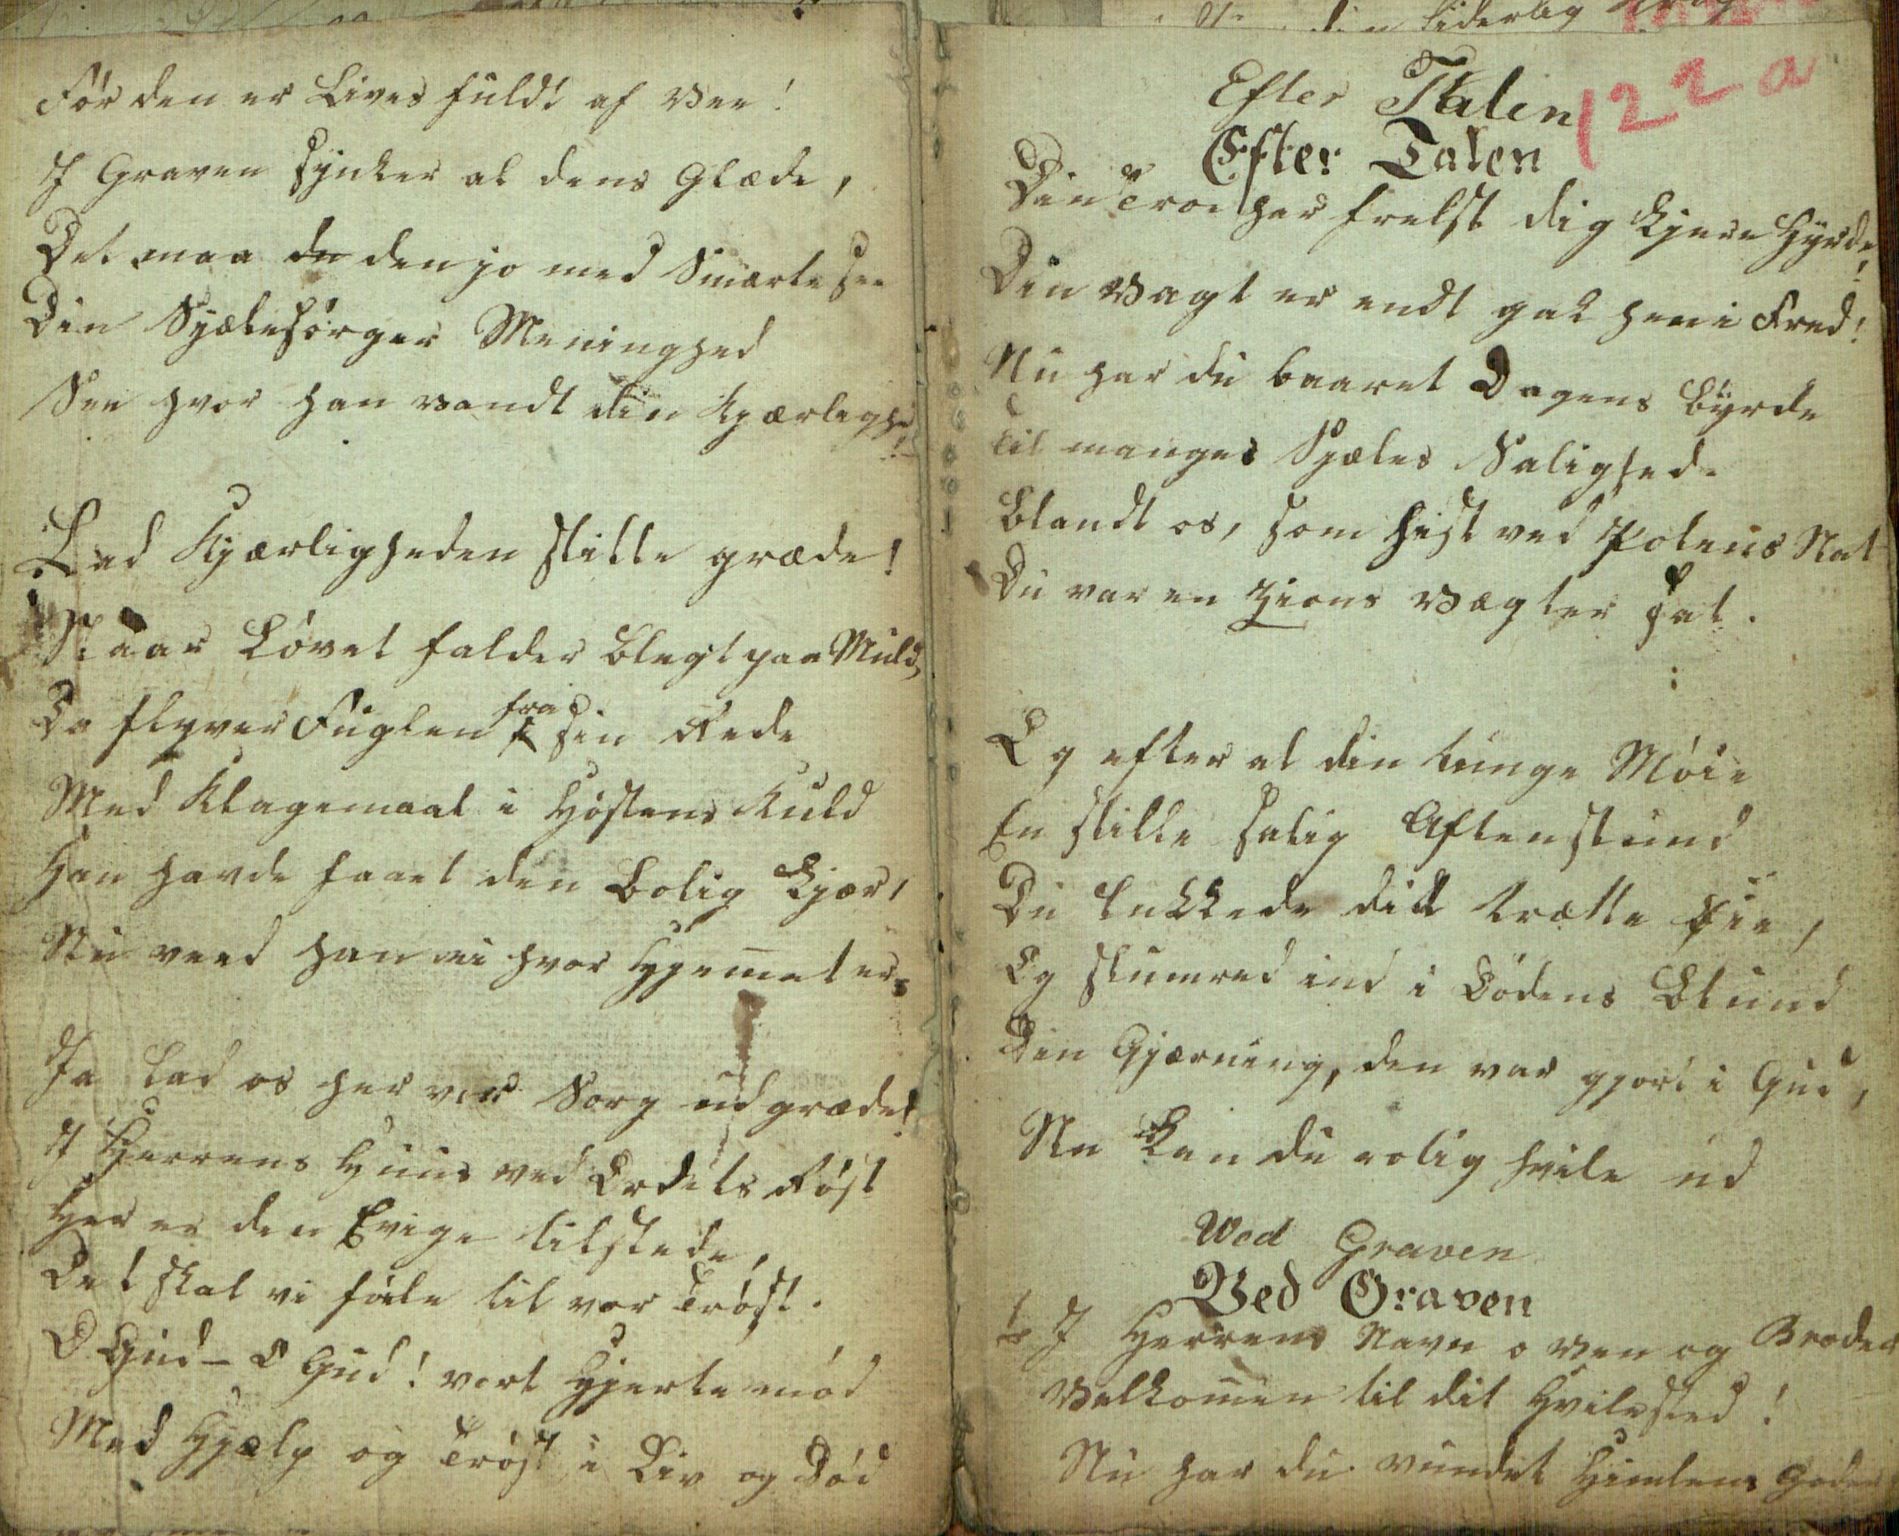 Før den er Livet fuldt af Vee!
I Graven synker al dens Glæde,
Det maa du den jo med Smerte see
Din Sjælesørger Meninghed
See hvor han vandt din Kjærlighed!
Lad Kjærligheden stille græde!
Naar Løvet falder blegt paa Muld,
Da flyver Fuglen fra sin Rede
Med Klagemaal i Høstens Kuld
Han havde faaet den Bolig kjær,
Nu veed han ei hvor Hjemet er,
Ja lad os her vor Sorg udgræde!
I Herrens Huus ved Ordets Røst
Her er den Evige tilstede,
Det skal vi føile til vor Trøst.
O Gud – O Gud! vort Hjerte mød
Med Hjælp og Trøst i Liv og Død
Efter Talen
122a
Efter Talen
Din Troe har frelst dig kjere Hyrde!
Din Vagt er endt gak hen i Fred!
Nu har du baaret Dagens Byrde
Til manges Sjæles Salighed.
Blandt os, som hist ved Polens Nat
Du var en Zions Vægter sat.
Og efter al din tunge Møie
En stille salig Aftenstund
Du lukkede dit trætte Øie,
Og slumred ind i Dødens Blund
Din Gjærning, den var gjort i Gud,
Nu kan du rolig hvile ud
Wed Graven
Ved Graven
I Herrens Navn o Ven og Broder
Velkommen til dit Hvilested!
Nu har du vundet Himlens Goder